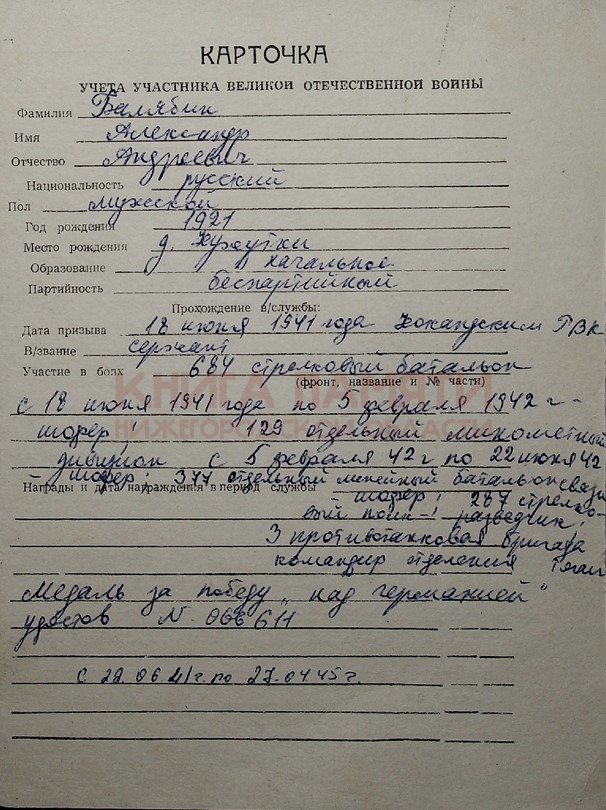 КАРТОЧКА
УЧЕТА УЧАСТНИКА ВЕЛИКОЙ ОТЕЧЕСТВЕННОЙ ВОЙНЫ
Фамилия Балябин
Имя Александр
Отчество Андреевич
Национальность русский
Пол мужской
Год рождения 1921
Место рождения д.
Образование начальное
Партийность беспартийный
Прохождение в/службы:
Дата призыва 18 июня 1941 года Кокандским ГВК
В/звание сержант
Участие в боях 684 стрелковый батальон
(фронт, название и № части)
КНИГА ПАМЯТИ
НИЖЕГОРОДСКОЙ ОБЛАСТИ
с 18 июня 1941 года по 5 февраля 1942 г -
шофер! 129 отдельный минометный
дивизион с 5 февраля 42 г по 22 июня 42
- шофер; 377 отдельный линейный батальон связи
Награды и дата награждения в период службы - шофер! 287 стрелко-
вый полк -! разведчик!
3 противотанковая бригада
командир отделения
Медаль за победу „над германией"
удостов N 066611
с 22.06.41г. по 27.04.45г.